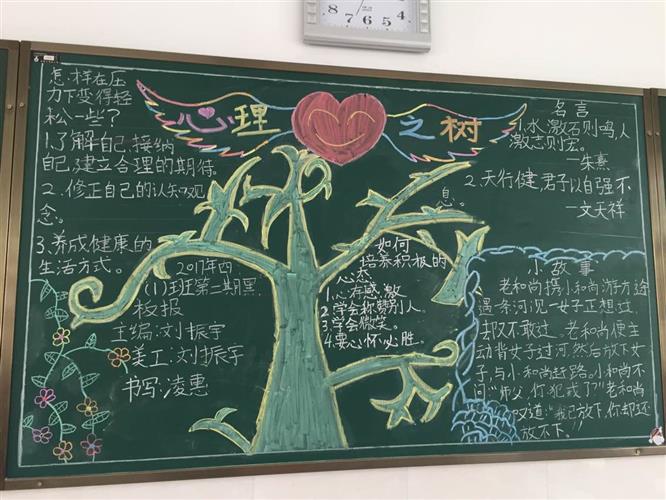 心理之树
怎样在压
力下变得轻
松一些?
1.了解自己,接纳
自己,建立合理的期待。
2.修正自己的认知观
念。
3.养成健康的
生活方式。
2017年四
(1)班第二期黑
板报
主编:刘振宇
美工:刘振宇
书写:凌惠
如何
培养积极的
心态
1.心存感激
2.学会称赞别人。
3.学会微笑。
4.要心怀必胜。
名言
1.水激石则鸣,人
激志则宏。
—朱熹
2.天行健,君子以自强不
息。
—文天祥
小故事
老和尚携小和尚游方途
遇一条河;见一女子正想过,
却又不敢过。老和尚便主
动背女子过河,然后放下女
子,与小和尚赶路。小和尚不
问:"师父,你犯戒了?"老和尚
叹道:"我已放下,你却还
放不下。!"